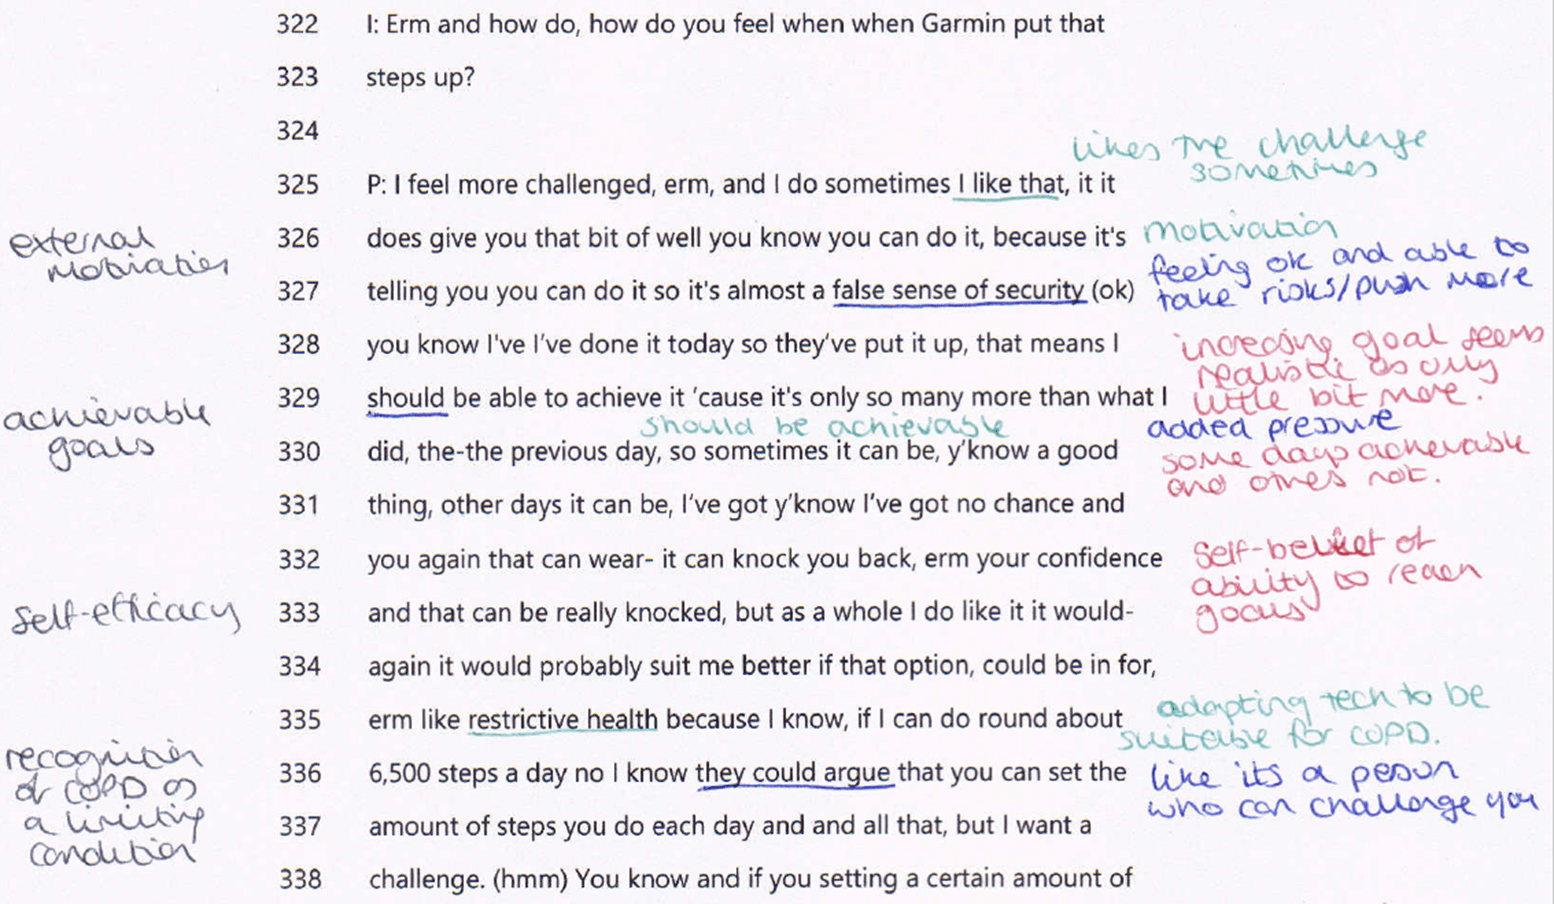 322 I: Erm and how do, how do you feel when when Garmin put that
323 steps up?
324
likes the challenge
sometimes
325 P: I feel more challenged, erm, and I do sometimes I like that, it it
external
motivation
326 does give you that bit of well you know you can do it, because it's
motivation
327 telling you you can do it so it's almost a false sense of security (ok)
feeling ok and able to
take risks/push more
328 you know I've I've done it today so they've put it up, that means I
increasing goal seems
realistic as only
little bit more.
achievable
goals
329 should be able to achieve it 'cause it's only so many more than what I
should be achievable
added pressure
330 did, the-the previous day, so sometimes it can be, y'know a good
some days achievable
and others not.
331 thing, other days it can be, I've got y'know I've got no chance and
332 you again that can wear- it can knock you back, erm your confidence
self-belief of
ability to reach
goals
self-efficacy
333 and that can be really knocked, but as a whole I do like it it would-
334 again it would probably suit me better if that option, could be in for,
335 erm like restrictive health because I know, if I can do round about
adapting tech to be
suitable for COPD.
recognition
of COPD as
a limiting
condition
336 6,500 steps a day no I know they could argue that you can set the
like its a person
who can challenge you
337 amount of steps you do each day and and all that, but I want a
338 challenge. (hmm) You know and if you setting a certain amount of